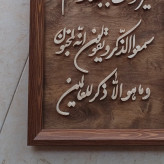 سمعوا الذكر ويقولون انه لمجنون
وما هو الا ذكر للعالمين